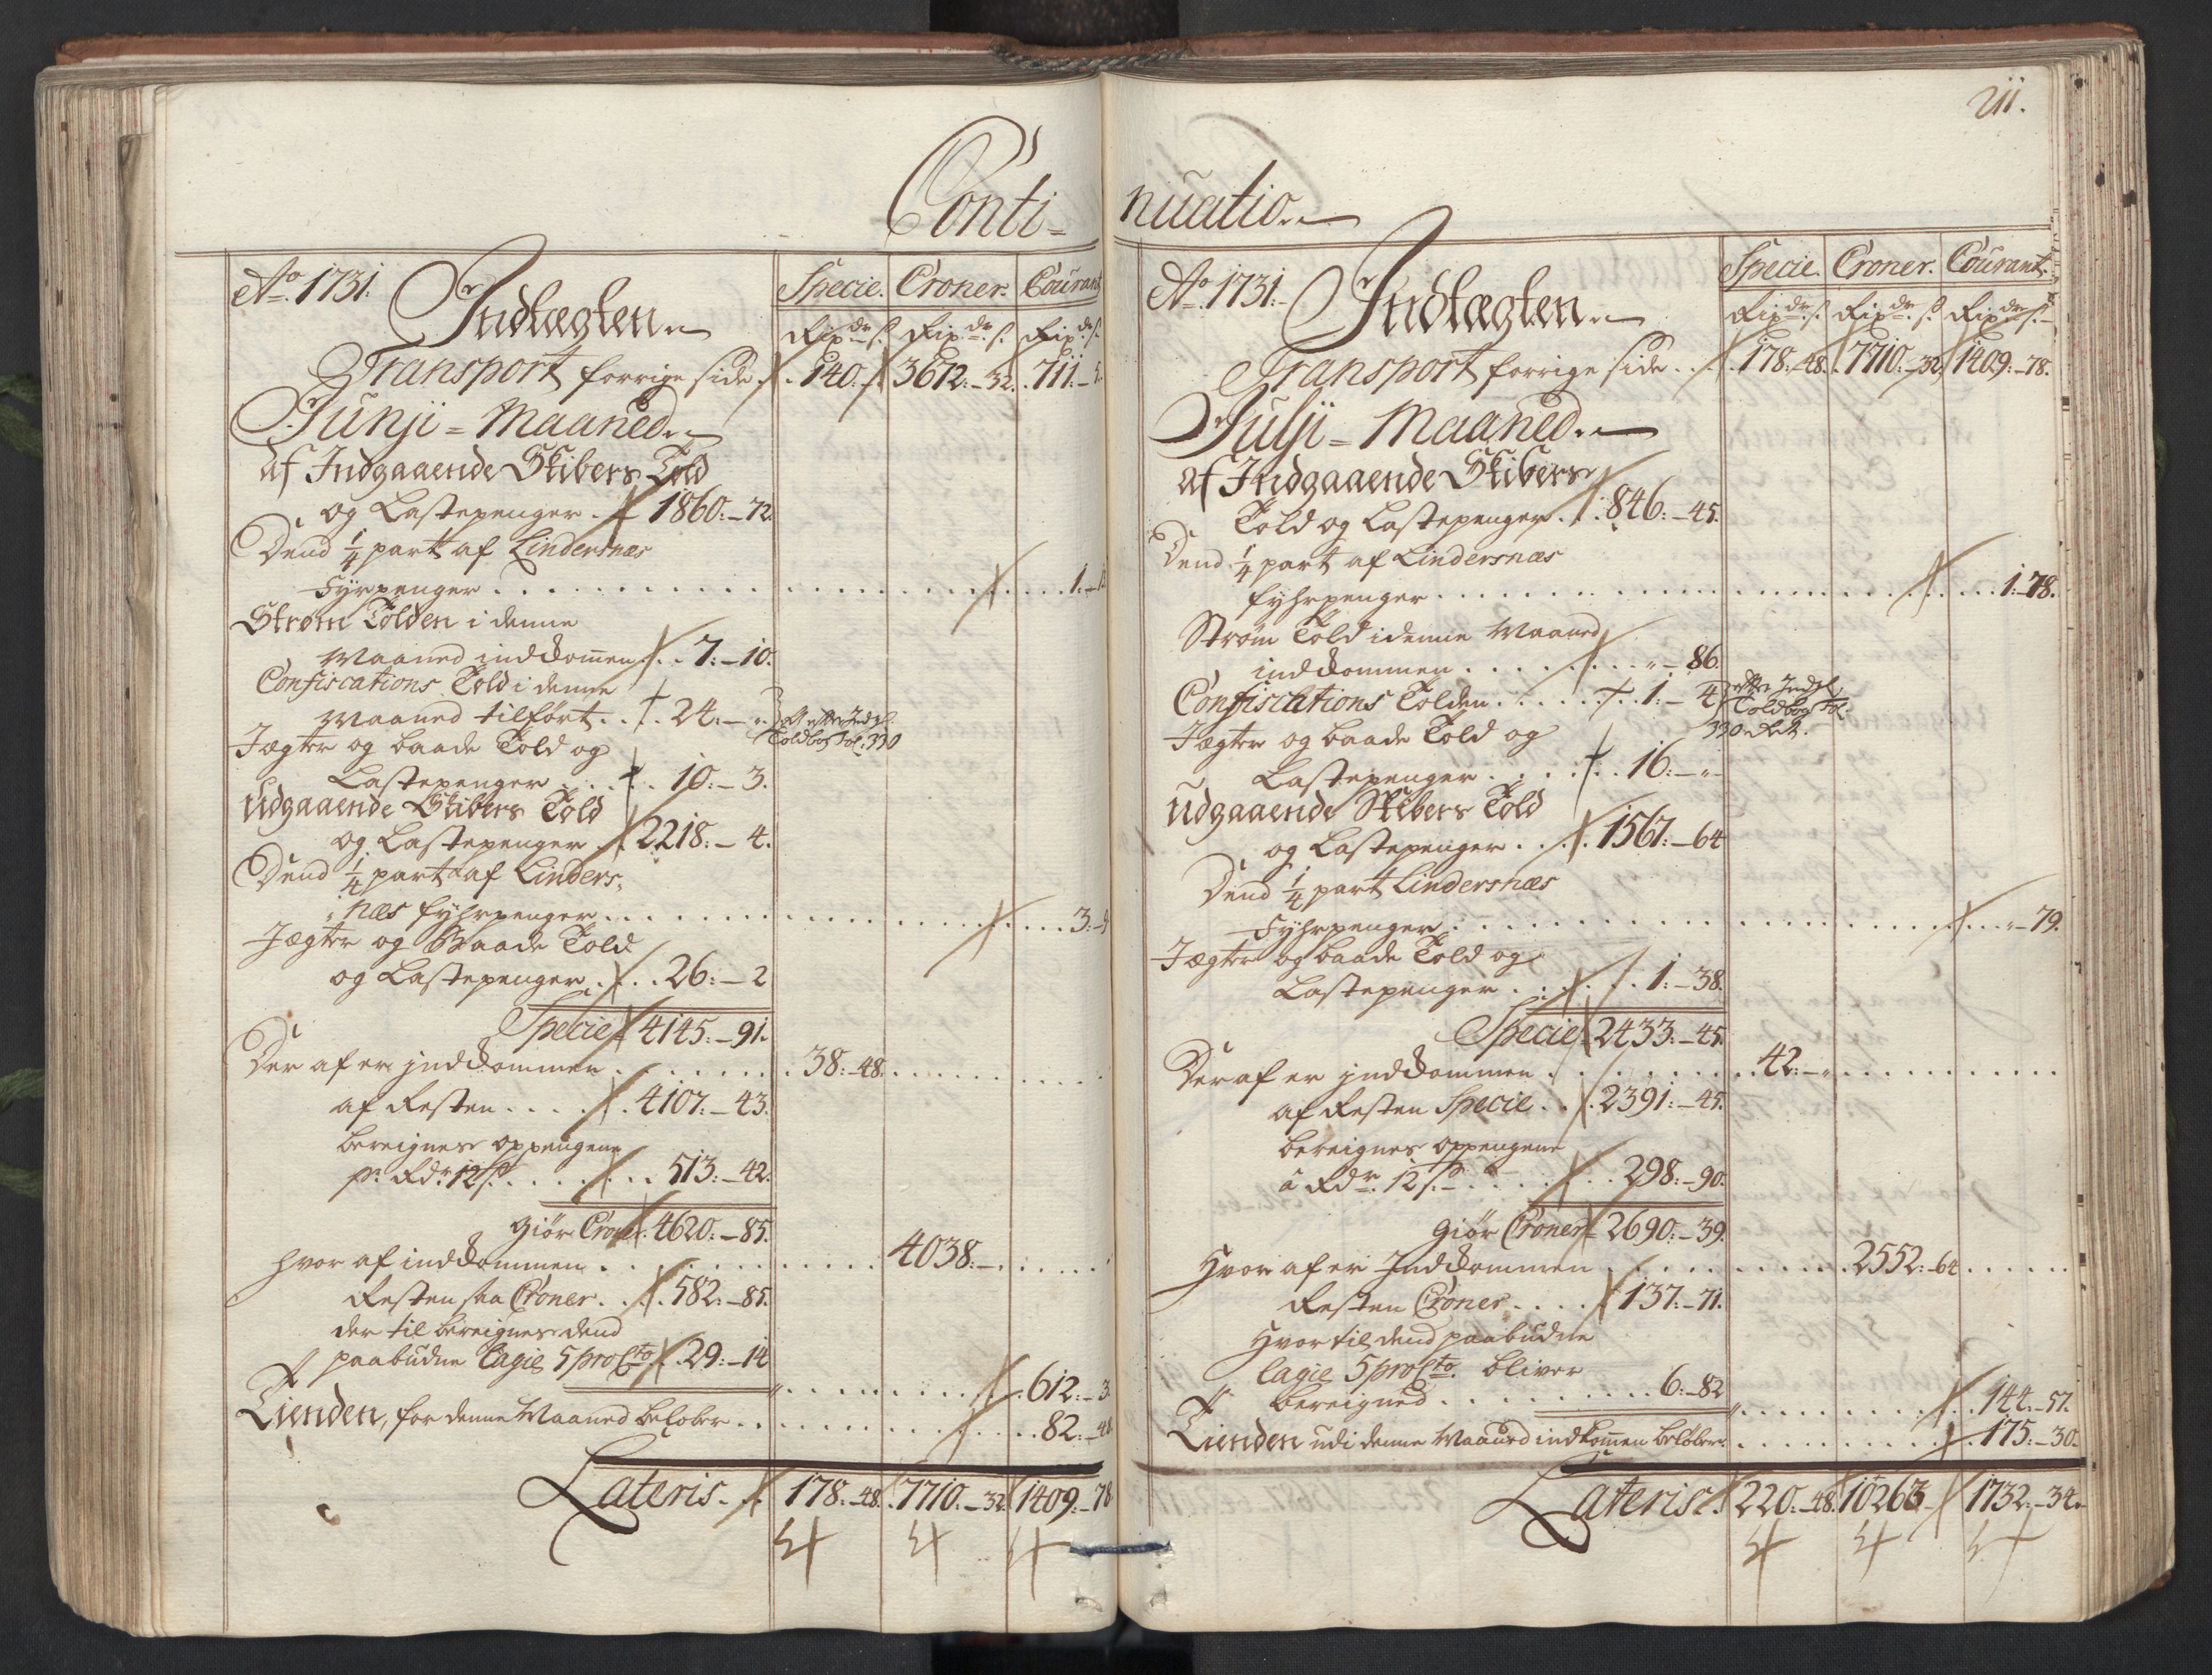 211.
Conti=
nuatio.
Ao. 1731. Indtægten. Specie. Croner. Courant
Rixdr. s. Rixdr. s. Rixdr. s.
Transport forrige side . 140.- 3672:-32. 711:-
Junji = Maaned.
Af Indgaaende Skibers Told
og Lastepenger . 1860:-72.
Dend 1/4 part af Lindersnæs
Fyrpenger . . . 1:-
Strøm Tolden i denne
Maaned indkommen . . 7:-10.
Confiscations Told i denne
Maaned tilført . . 24:-"
Toldbog fol: 330
Jægter og baade Told og
Lastepenger . . . 10:-3.
Udgaaende Skibers Told
og Lastepenger . 2218:-4.
Dend 1/4 part af Linders,
næs fyhrpenger . . . 3:-
Jægter og Baade Told
og Lastepenger . . . 26:-2
Specie 4145:-91.
Der af er indkommen . . . 38:-48. . . .
af Resten . . . . 4107:-43.
bereignes oppengene
pr. Rdr. 12 s. . . . 513:-42.
Giør Croner 4620:-85.
hvor af indkommen . . . 4038:- . . .
Resten paa Croner . . . 582:-85.
der til bereignes dend
paabudne Lagie 5 pro Cto . . 29:-14
" . . . 612:-3
Tienden, for denne Maaned beløber . . . 82:-48
Lateris . 178:-48. 7710:-32. 1409:-78
Ao. 1731. Indtægten. Specie. Croner. Courant.
Rixdr. s. Rixdr. s. Rixdr. s.
Transport forrige side . . 178:-48. 7710:-32 1409:-78.
Julji = Maaned.
Af Indgaaende Skibers
Told og Lastepenger . . 846:-45.
Dend 1/4 part af Lindersnæs
fyhrpenger . . . 1:-78.
Strøm Told i denne Maaned
indkommen . . . "-86.
Confiscations Tolden . . . 1:-4
efter Indgl.
Toldbog fol.
330
Jægter og baade Told og
Lastepenger . . . 16:-"-
Udgaaende Skibers Told
og Lastepenger . . . 1567:-64
Dend 1/4 part Lindersnæs
Fyhrpenger . . . "-79.
Jægter og baade Told og
Lastepenger . . . 1:-38.
Specie 2433:-45.
Der af er indkommen . . . 42:-" . . .
af Resten Specie . . 2391:-45.
bereignes oppengene
a Rdr. 12 s. . . . 298:-90.
Giør Croner 2690:-39.
Hvor af er Indkommen . . . 2552:-64 . . .
Resten Croner . . . . 137:-71.
Hvor til dend paabudne
Lagie 5 pro Cto. bliver
bereigned . . . 6:-82
" . . . 144:-57.
Tienden udi denne Maaned indkommen beløber . . . 175:-30.
Lateris . 220:-48. 10263- 1732:-34.